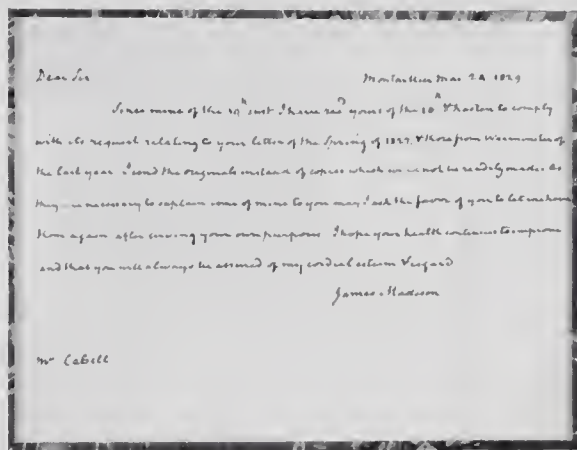 Dear Sir Montpellier Mar. 24 1829
Since mine of the 19th inst I have recd yours of the 18th & hasten to comply
with its request relating to your letter of the Spring of 1827, & those from Warminster of
the last year I send the originals instead of copies which could not be readily made. As
they are necessary to explain some of mine to you may I ask the favor of you to let me have
them again after serving your own purpose I hope your health continues to improve
and that you will always be assured of my cordial esteem & regard
James Madison
Mr Cabell